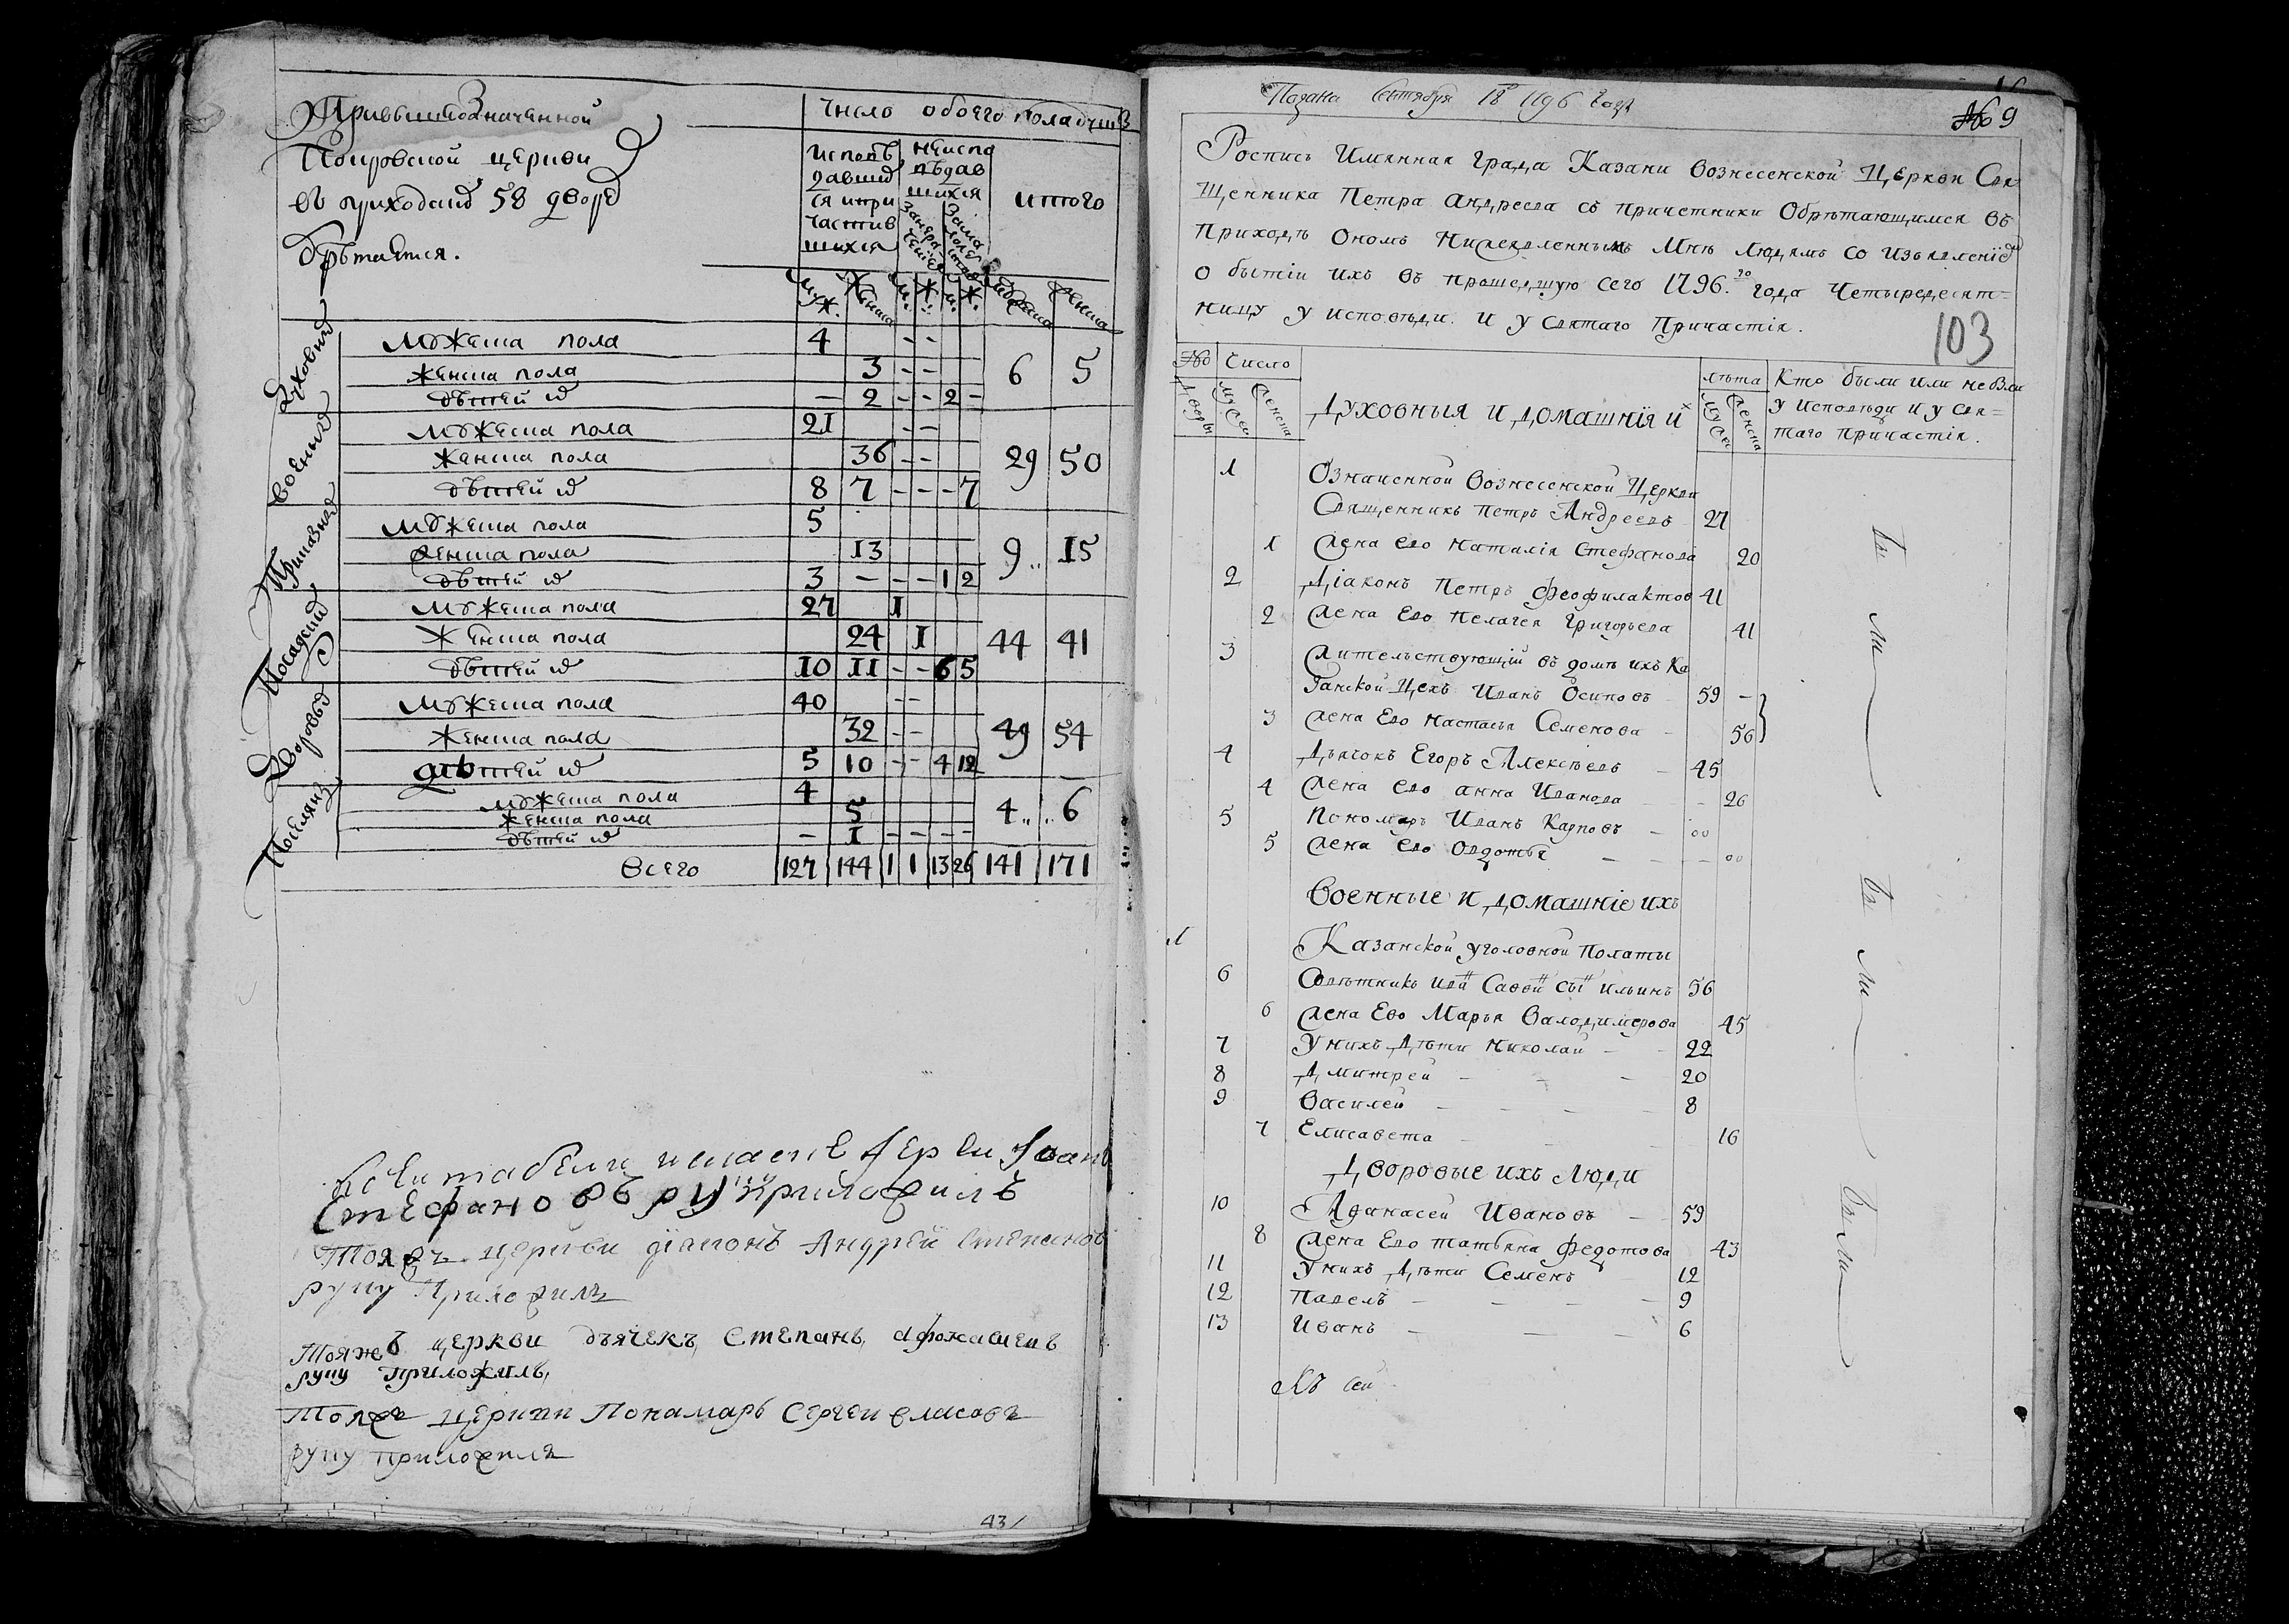 При вышеозначенной
Покровской церкви
въ приходахъ 58 дворѡ
обрѣтается.
Число обоего пола душъ
исповѣ
давши
ся и при
частив
шихся
неиспо
вѣдав
шихся
итого
муж.
женска
м.
ж.
м.
ж.
женска
Духовныхъ
мужеска пола 4 - -
женска пола 3 - - 6 5
дѣтей их - 2 - - 2 -
Военныхъ
мужеска пола 21 - -
женска пола 36 - - 29 50
дѣтей их 8 7 - - - 7
Приказныхъ
мужеска пола 5
женска пола 13 9 15
дѣтей их 3 - - - 1 2
Посадскихъ
мужеска пола 27 1
женска пола 24 1 44 41
дѣтей их 10 11 - - 6 5
Дворовыхъ
мужеска пола 40 - -
женска пола 32 - - 49 54
дѣтей их 5 10 - - 4 12
Поселянъ
мужеска пола 4
женска пола 5 4 6
дѣтей их - 1 - - - -
Всего 127 144 1 1 13 26 141 171
Стефановъ руку приложилъ
Тояжъ церкви діаконъ Андрей Степановъ
руку приложилъ
Тояжъ церкви дъячекъ Степанъ
руку приложилъ
Тояжъ церкви Понамарь Сергеи власовъ
руку приложилъ
43
Подана Сентября 18 1796 года
№ 9
Роспись Имянная града Казани Вознесенской Церкви Свя
щенника Петра Андреева съ причетники Обрѣтающимся въ
приходѣ ономъ нижеявленнымъ мнѣ людямъ со изъявленіемъ
о бытіи ихъ въ прошедшую сего 1796.го года Четыредесят=
ницу у исповѣди. и у святаго Причастія.
103
№ Число
Дворы
мужск
женска
Духовныя и домашнія их
лѣта
мужск
женска
Кто были или не были
у исповѣди и у свя=
таго причастія.
1 Означенной Вознесенской Церкви
Священникъ Петръ Андреевъ 27
1 жена ево Наталія Стефанова 20
2 Діаконъ Петръ Феофилактов 41
2 жена ево Пелагея Григорьева 41
3 жительствующій въ домѣ ихъ Ка
занской Цехъ Иванъ Осиповъ 59 -
3 жена Ево Настасья Семенова - 56
4 Дьячокъ Егоръ Алексѣевъ - 45
4 жена ево анна Иванова - 26
5 Пономарь Иванъ Карповъ - 00
5 жена ево Овдотья - - - - 00
Военные и домашніе ихъ
1 Казанской уголовной Полаты
6 Совѣтникъ Ильинъ 56
6 жена Ево Марья Валодимерова 45
7 У нихъ Дѣти Николай - - 22
8 Дмитрей - - - 20
9 Василей - - - - 8
7 Елисавета - - - 16
Дворовые ихъ люди
10 Афанасей Ивановъ - 59
8 жена Ево Татьяна Федотова 43
11 У нихъ Дѣти Семенъ 12
12 Павелъ - - - - 9
13 Иванъ - - - 6
Къ сей